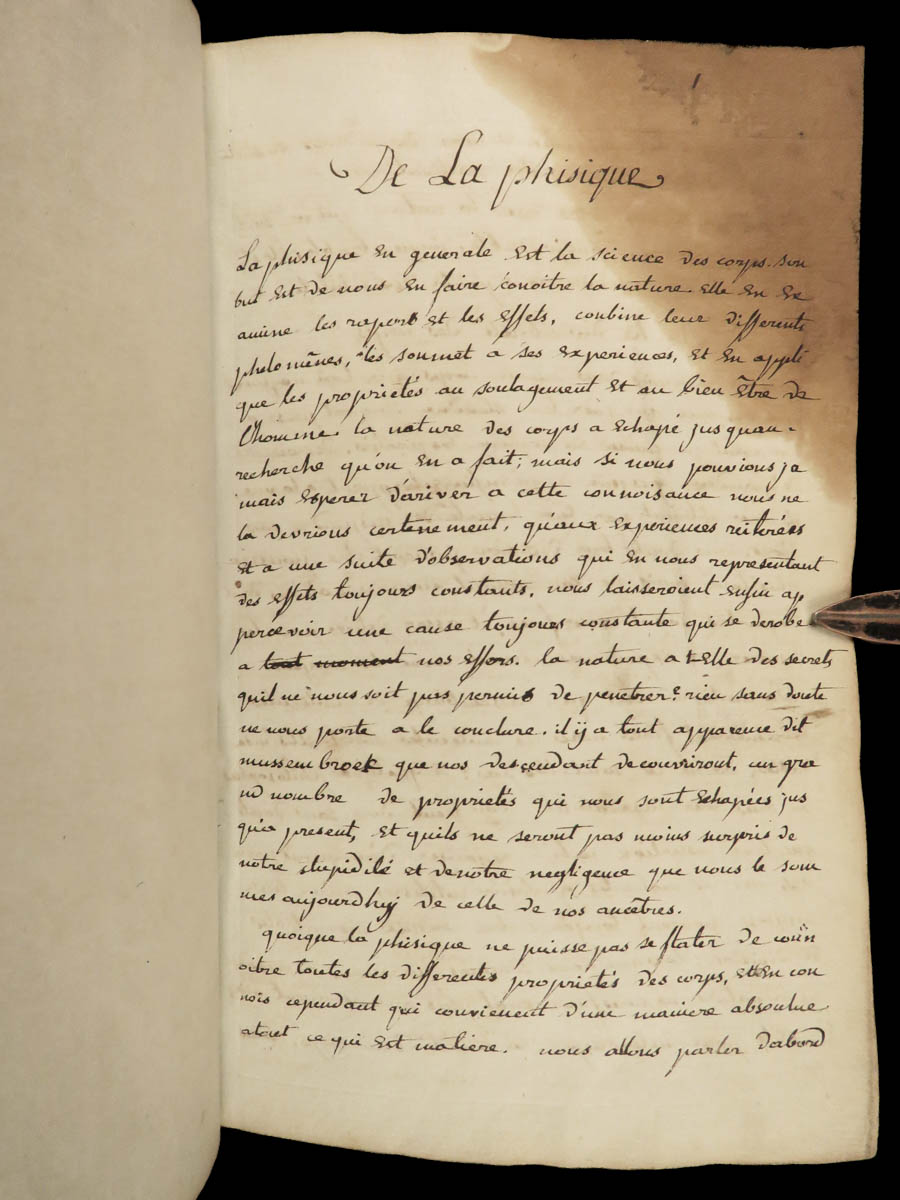 1
De La phisique
La phisique en generale est la science des corps. son
but est de nous en faire conoitre la nature. elle en ex
amine les raports et les effets, conbine leur differents
phelomènes, les soumet a ses experiences, et en appli
que les proprietés au soulagement et au bien être de
l'homme. la nature des corps a echapé jusquau
recherche qu'on en a fait; mais si nous pouvions ja
mais esperer d'ariver a cette connoisance nous ne
la devrions certenement, qu'aux experiences reiterées
et a une suite d'observations qui en nous representant
des effets toujours constants, nous laisseroient enfin ap
percevoir une cause toujours constante qui se derobe
a tout moment nos effors. la nature a t-elle des secrets
quil ne nous soit pas permis de penetrer? rien sans doute
ne nous porte a le conclure. il y a tout apparence dit
mussembroek que nos descendant decouvriront, un gra
nd nombre de proprietés qui nous sont echapées jus
qu'a present, et quils ne seront pas moins surpris de
notre stupidité et de notre negligence que nous le som
mes aujourdhuj de celle de nos ancêtres.
quoique la phisique ne puisse pas se flater de conn
oitre toutes les differentes proprietés des corps, en con
nois cependant qui convienent d'une maniere absolue
atout ce qui est matiere. nous allons parler dabord